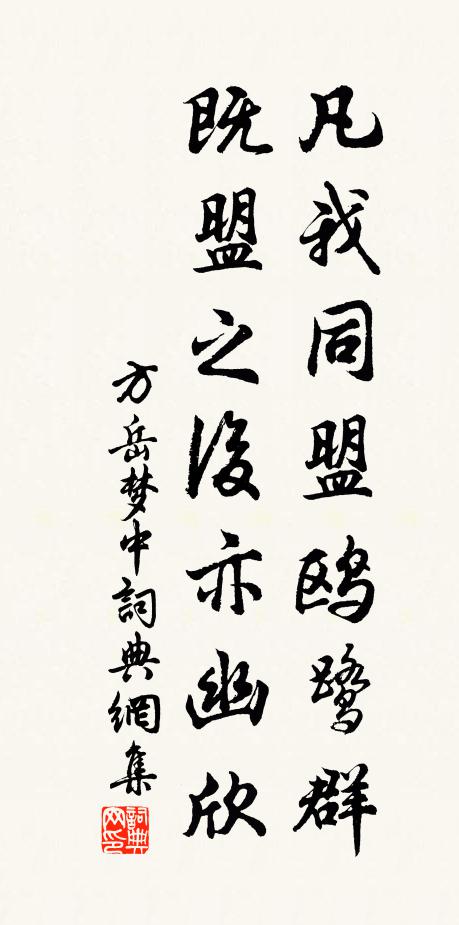 凡我同盟鸥鹭群
既盟之後亦幽欣
方岳梦中詞典網集
詞典网印